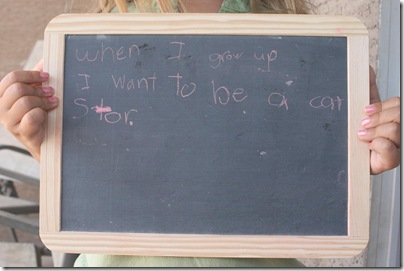 when I grow up
I want to be a cat
Stor.